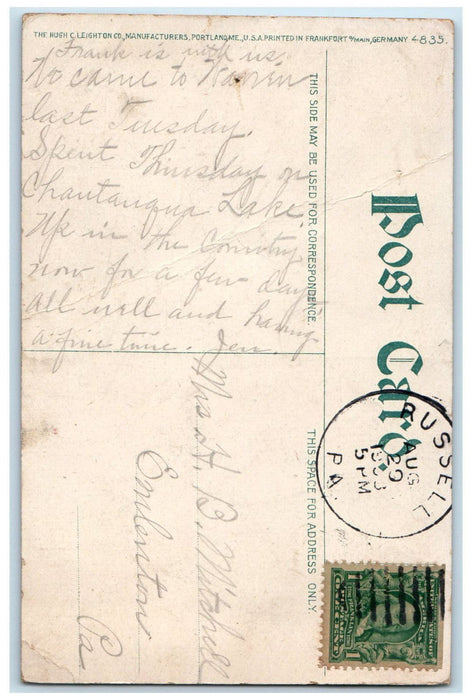 THE HUGH C. LEIGHTON CO., MANUFACTURERS, PORTLAND, ME., U.S.A. PRINTED IN FRANKFORT o/MAIN, GERMANY 4835.
Frank is with us.
We came to Warren
last Tuesday.
Spent Thursday on
Chautauqua Lake.
Up in the Country
now for a few days
all well and having
a fine time. Jen.
THIS SIDE MAY BE USED FOR CORRESPONDENCE.
Post Card.
THIS SPACE FOR ADDRESS ONLY.
RUSSELL
AUG
29
5 PM
PA.
Mrs H. B. Mitchell
Emlenton
Pa
1 1